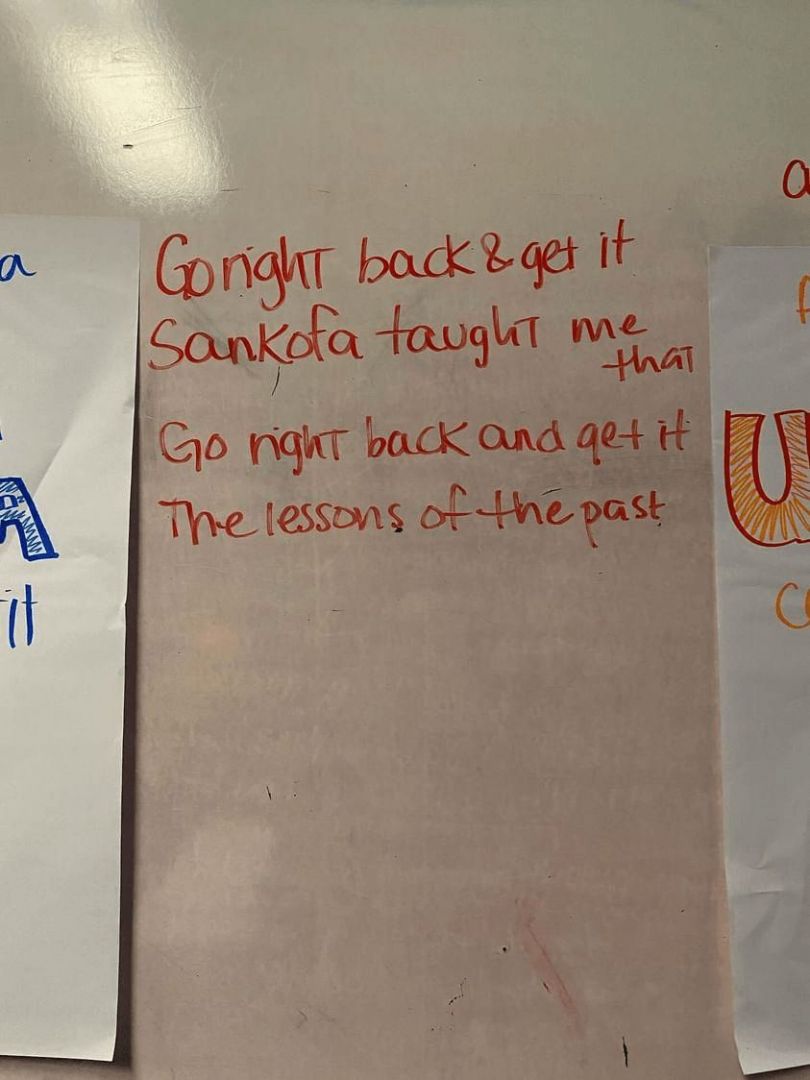 a
Go right back & get it
Sankofa taught me
that
Go right back and get it
The lessons of the past
A
it
a
f
U
c